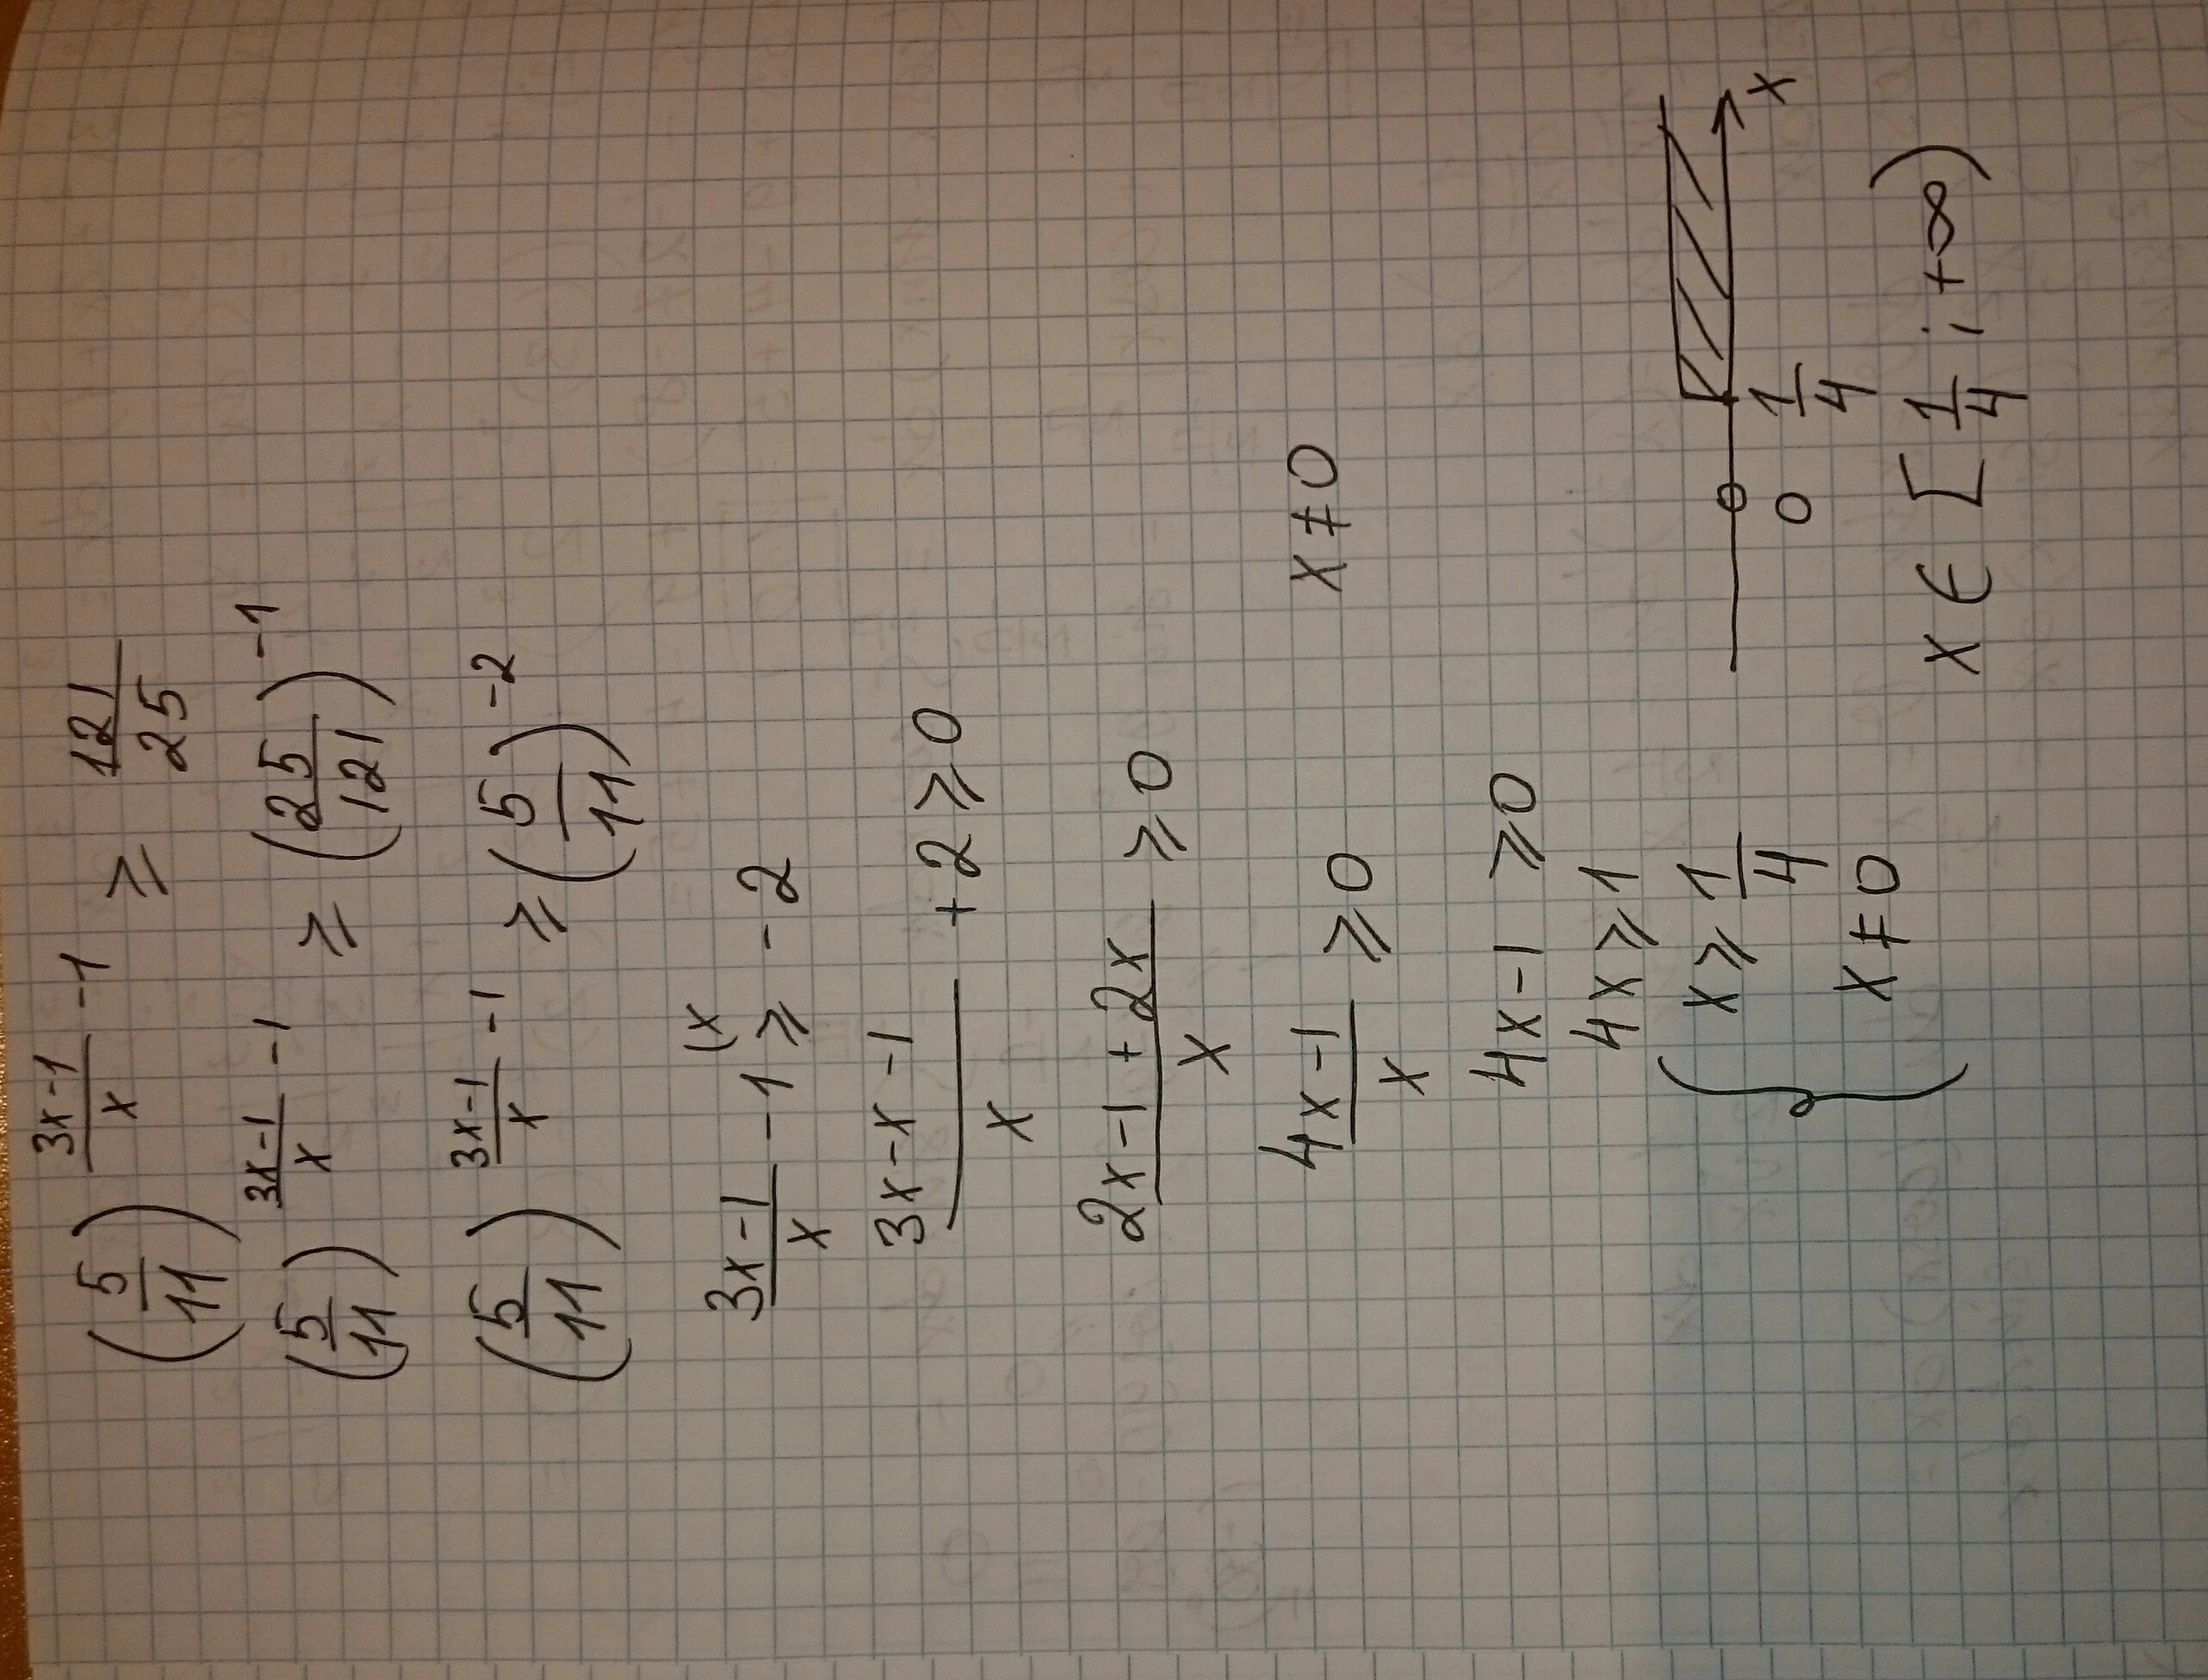 (5/11)^((3x-1)/x - 1) ⩾ 121/25
(5/11)^((3x-1)/x - 1) ⩾ (25/121)^(-1)
(5/11)^((3x-1)/x - 1) ⩾ (5/11)^(-2)
(3x-1)/x - 1 (x ⩾ -2
(3x-x-1)/x + 2 ⩾ 0
(2x-1+2x)/x ⩾ 0
(4x-1)/x ⩾ 0 x ≠ 0
4x-1 ⩾ 0
4x ⩾ 1
{ x ⩾ 1/4
x ≠ 0
0 1/4 x
x ∈ [1/4 ; +∞)